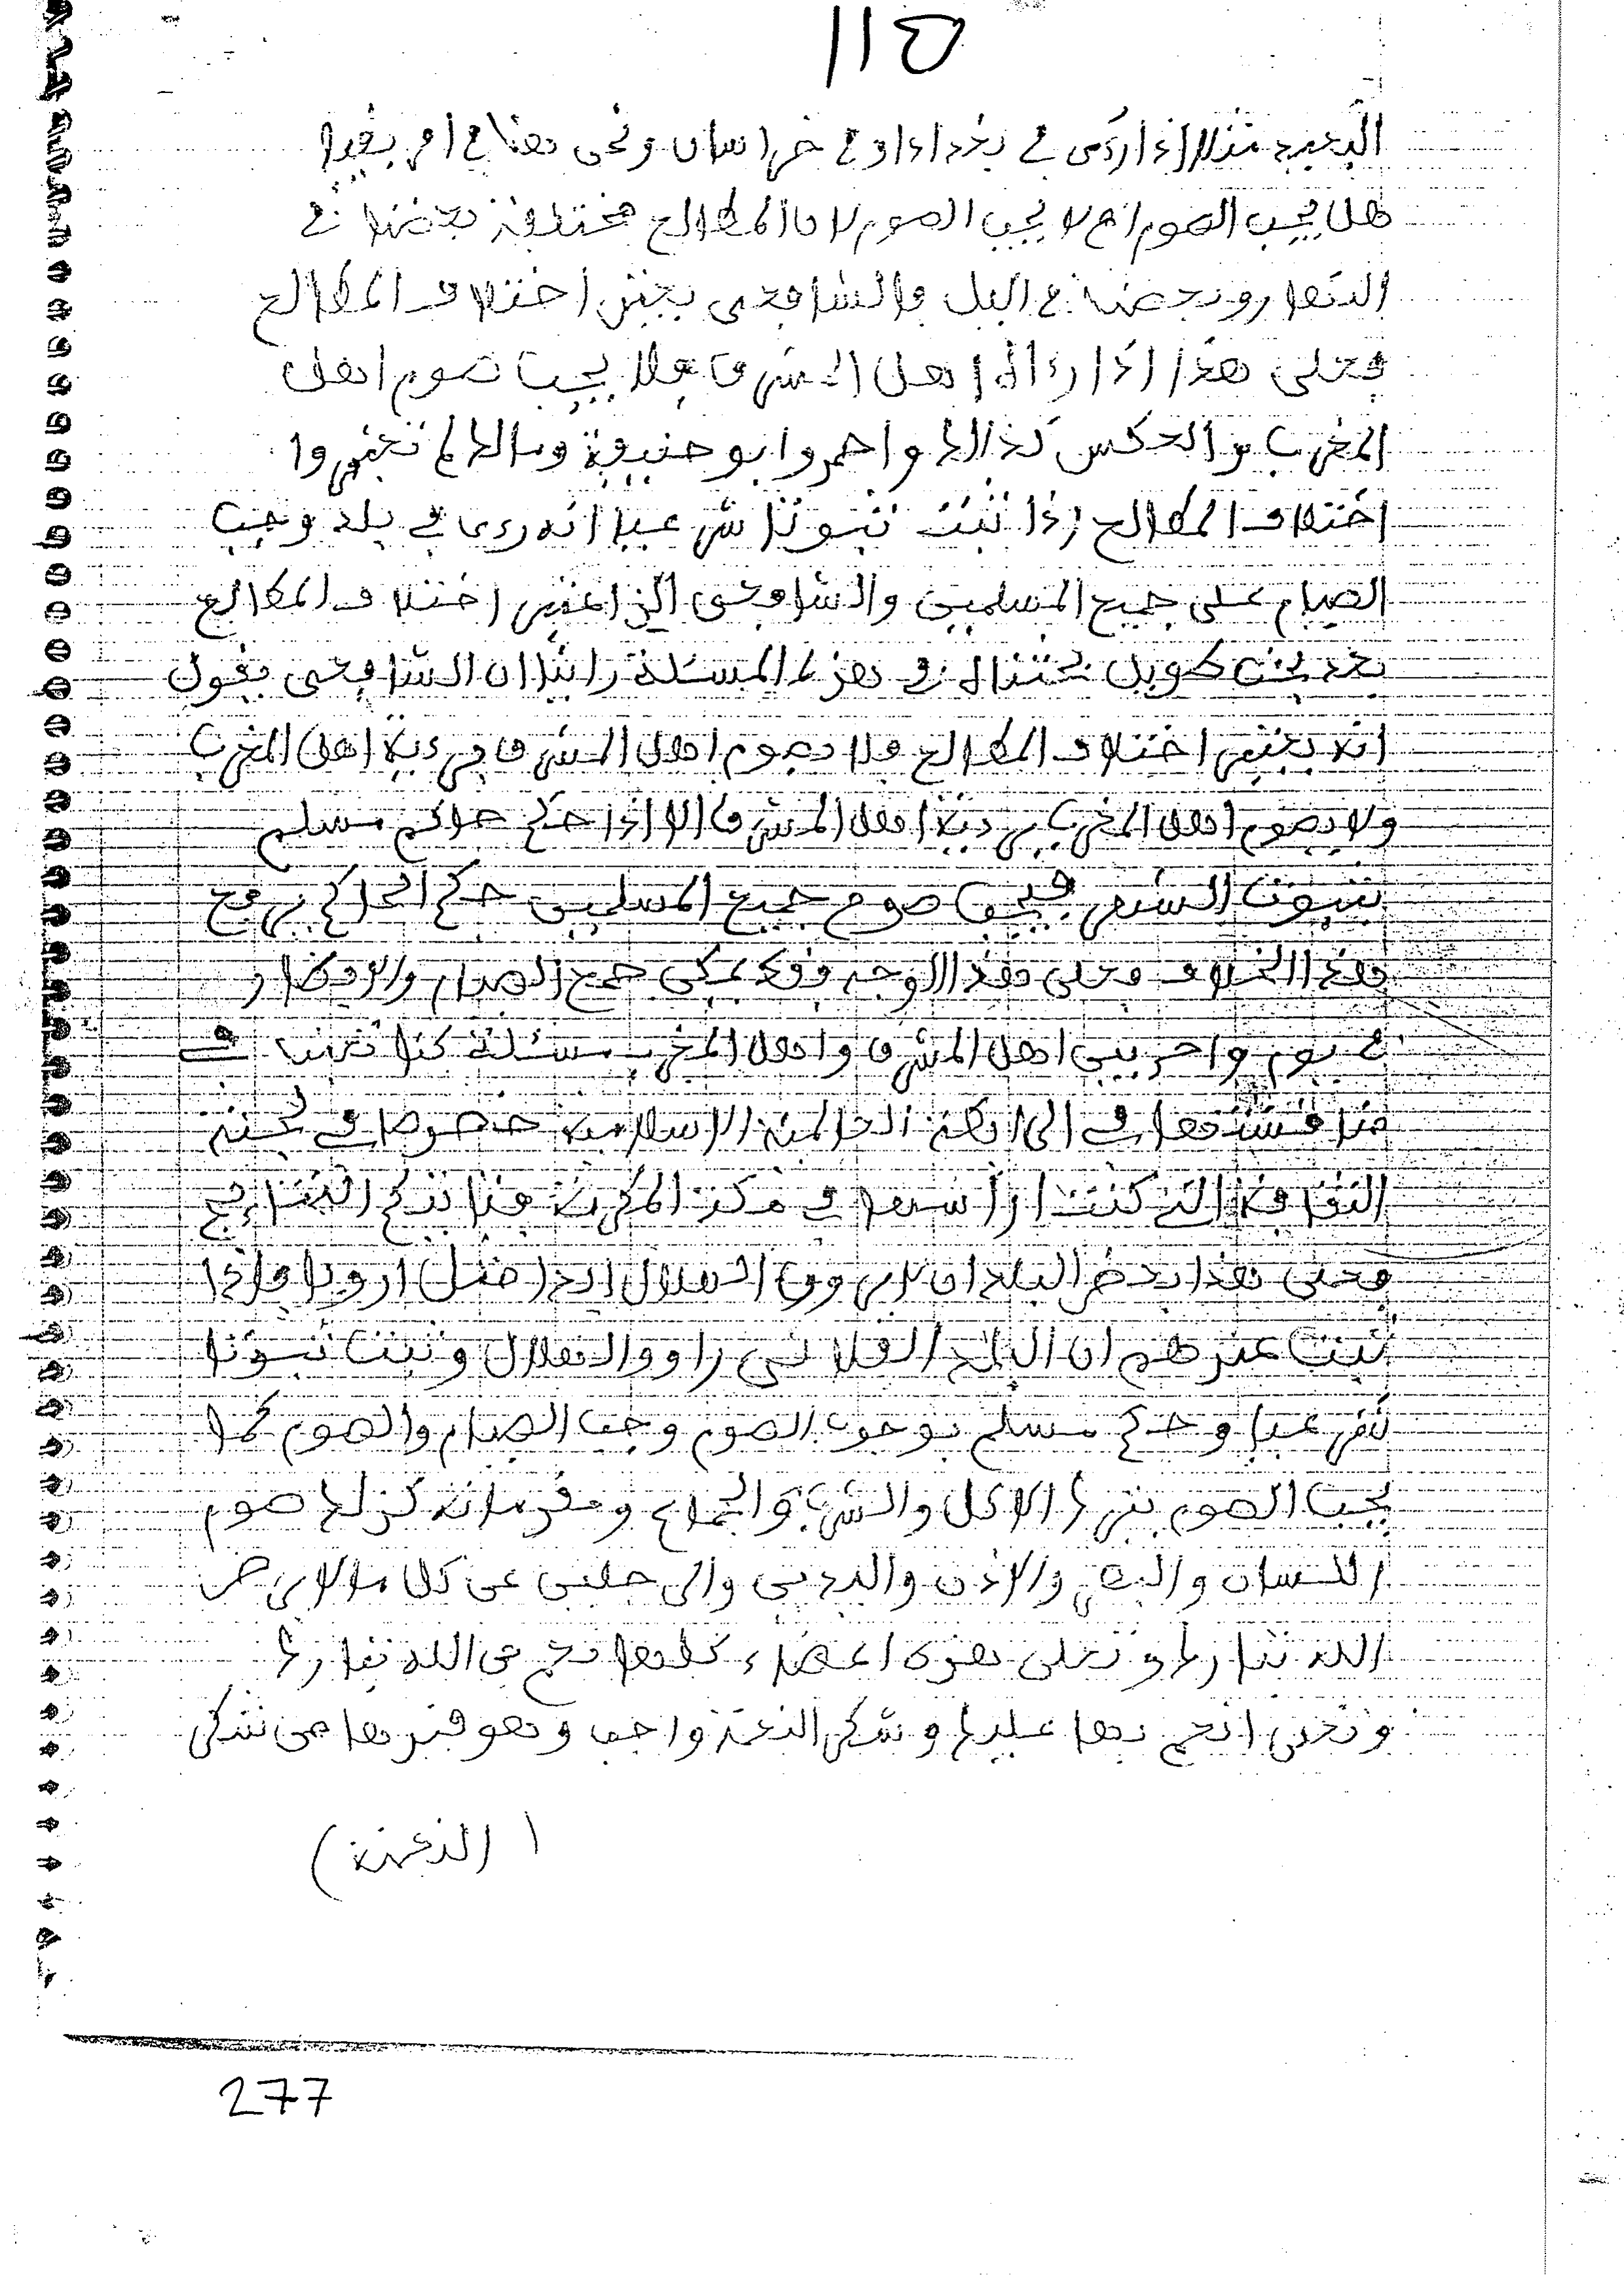 115
البعيد مثلا إذا رُءى في بغداد او في خراسان ونحن هنا في افريقيا
هل يجب الصوم ام لا يجب الصوم لان المطالع مختلفة بعضها في
النهار وبعضها في اليل والشافعى يعتبر اختلاف المطالع
فعلى هذا اذا رءاه اهل المشرق فلا يجب صوم اهل
المغرب والعكس كذالك واحمد وابو حنيفة ومالك لم تعتبروا
اختلاف المطالع إذا ثبت ثبوتا شرعيا انه رءى في بلد وجب
الصيام على جميع المسلمين والشافعى الذي اعتبر اختلاف المطالع
بعد بحث طويل في هذه المسئلة رايتا ان الشافعى يقول
انه يعتبر اختلاف المطالع فلا يصوم اهل المشرق برءية اهل المغرب
ولا يصوم اهل المغرب برءية اهل المشرق الا اذا حكم حاكم مسلم
بثبوت الشهر فيجب صوم جميع المسلمين حكم الحاكم يرفع
هذا الخلاف فعلى هذا الوجه فقد يمكن جمع الصيام والافطار
في يوم واحد بين اهل المشرق واهل المغرب مسئلة كنا تعبنا في
مناقشتها في الرابطة العالمية الاسلامية خصوصا في لجنة
الثقافة التي كنت اراسها في مكة المكرمة فنانتج النتايج
فعلى هذا بعض البلدان لا يروون الهلال ابدا مثل اروبا فإذا
ثبت عندهم ان البلد الفلاني راوو الهلال وثبت ثبوتا
شرعيا وحكم مسلم بوجوب الصوم وجب الصيام والصوم كما
يجب الصوم بترك الاكل والشرب والجماع ومقدماته كذلك صوم
اللسان والبصر والاذن واليدين والرجلين عن كل ما لا يرضى
الله تبارك وتعلى هذه اعضاء كلها نعم من الله تبارك
وتعلى انعم بها عليك وشكر النعمة واجب وهو قيدها من شكر
( النعمة )
277